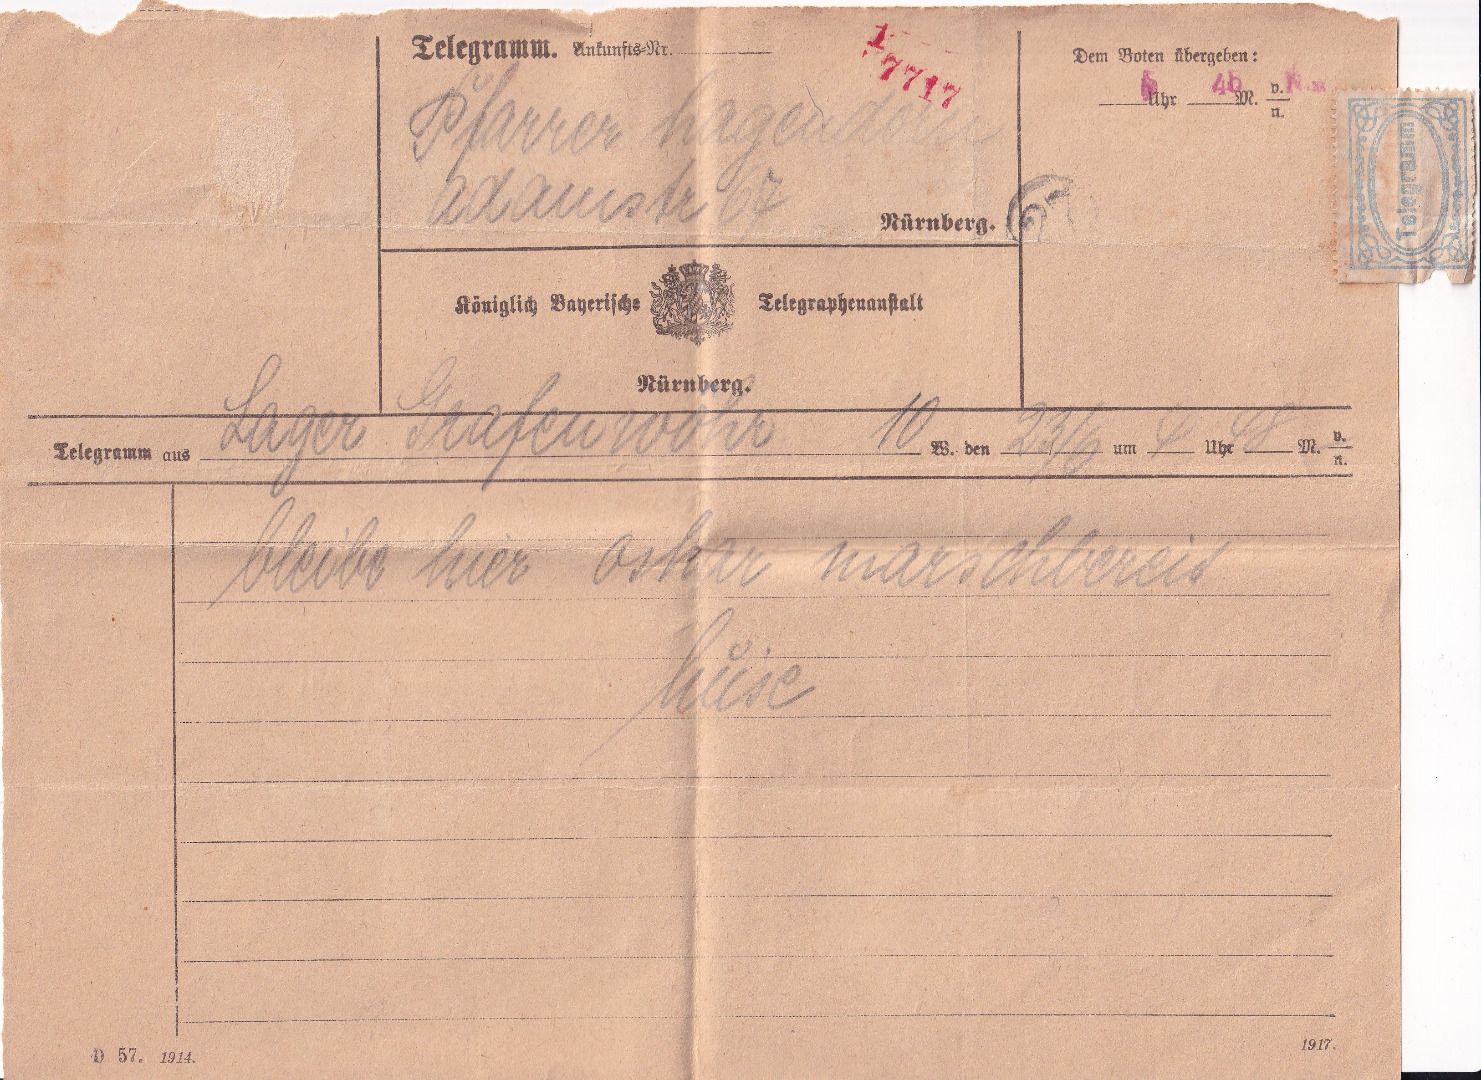 Telegramm. Ankunfts-Nr.
1
7717
Dem Boten übergeben:
Uhr 46 M. v./n.
Pfarrer hagendorn
adamstr 67
Nürnberg.
Telegramm
Königlich Bayerische Telegraphenanstalt
Nürnberg.
Telegramm aus Lager Grafenwöhr 10 W. den 23/6 um 4 Uhr 48 M. v./n.
bleibe hier oskar marschbereit
D 57. 1914.
1917.